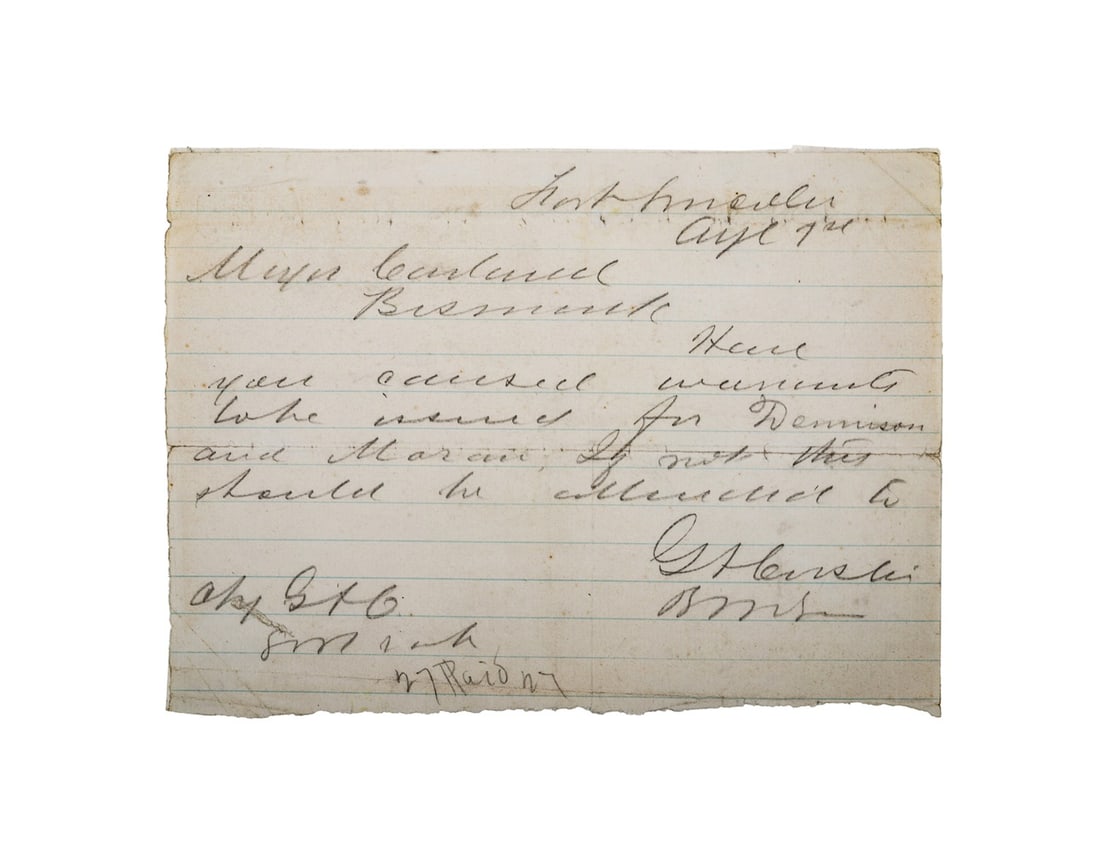 Fort Lincoln
Major
Bismarck
Have
you caused warrants
to be issued for Dennison
and Moran, If not this
should be attended to
G A Custer
Chg G A C.
Govt rate
27 Paid 27